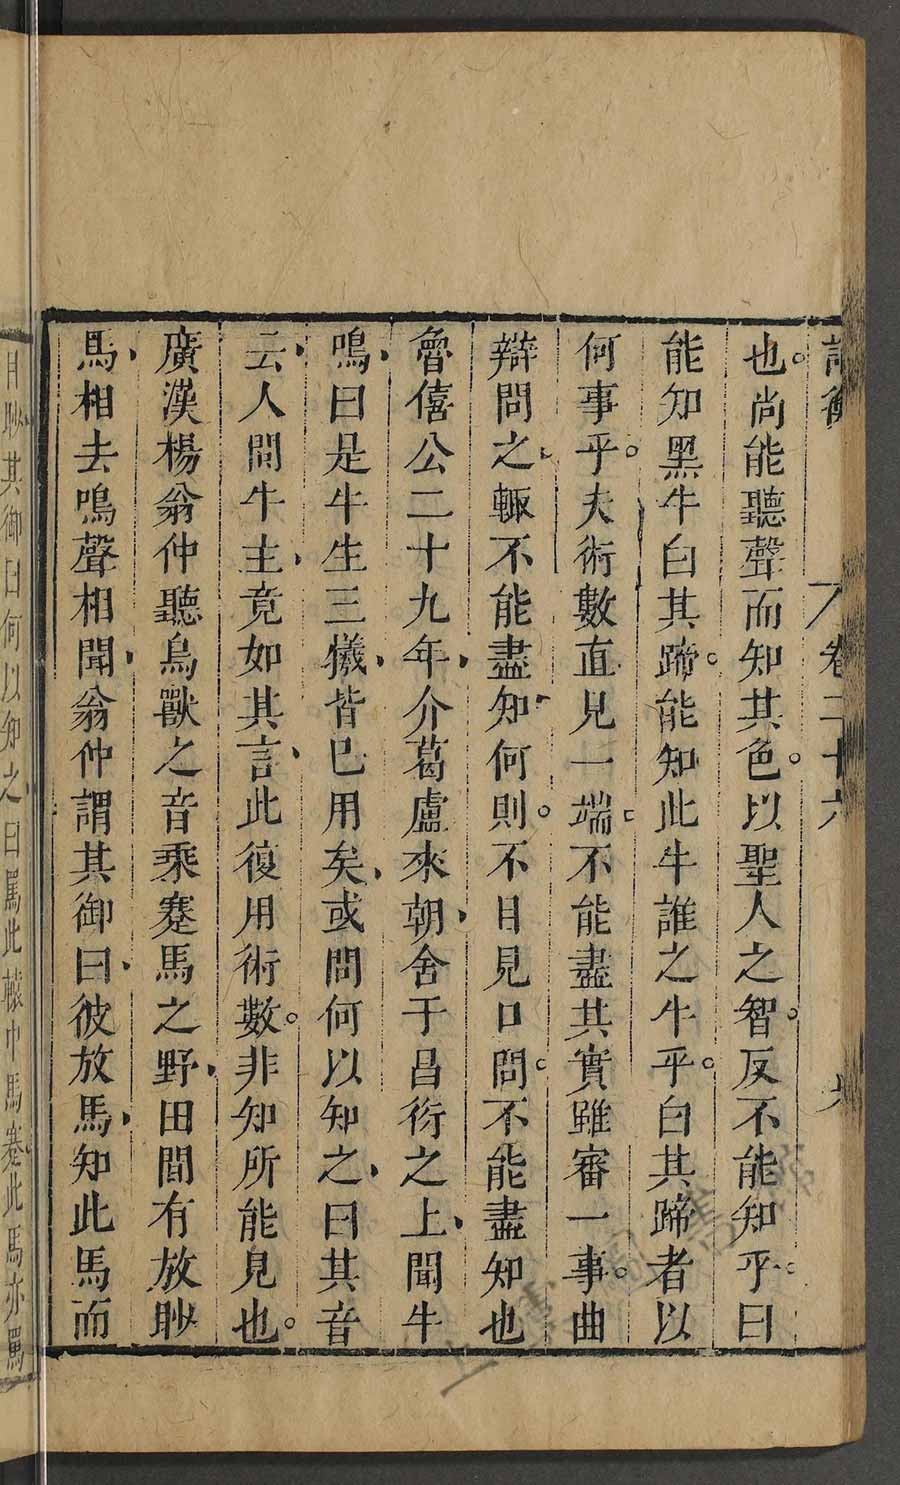 論衡 卷二十六
也尚能聽聲而知其色以聖人之智反不能知乎曰
能知黑牛白其蹄能知此牛誰之牛乎白其蹄者以
何事乎夫術數直見一端不能盡其實雖審一事曲
辯問之輒不能盡知何則不目見口問不能盡知也
魯僖公二十九年介葛盧來朝舍于昌衍之上聞牛
鳴曰是牛生三犧皆已用矣或問何以知之曰其音
云人問牛主竟如其言此復用術數非知所能見也
廣漢楊翁仲聽鳥獸之音乘蹇馬之野田間有放眇
馬相去鳴聲相聞翁仲謂其御曰彼放馬知此馬而
目眇其御曰何以知之曰罵此轅中馬蹇此馬亦罵